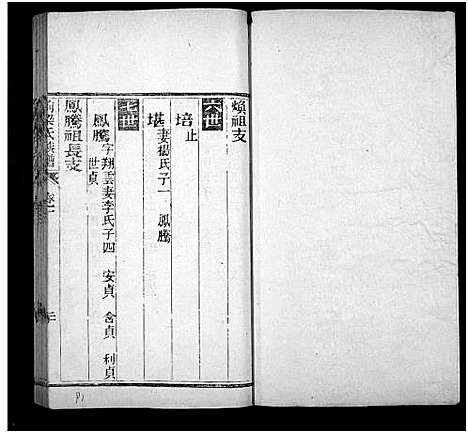 煥祖支
六世
培止
堪妻楊氏子一 鳳騰
七世
鳳騰字翔雲妻李氏子四 安貞 含貞 利貞
世貞
鳳騰祖長支
梁氏族譜